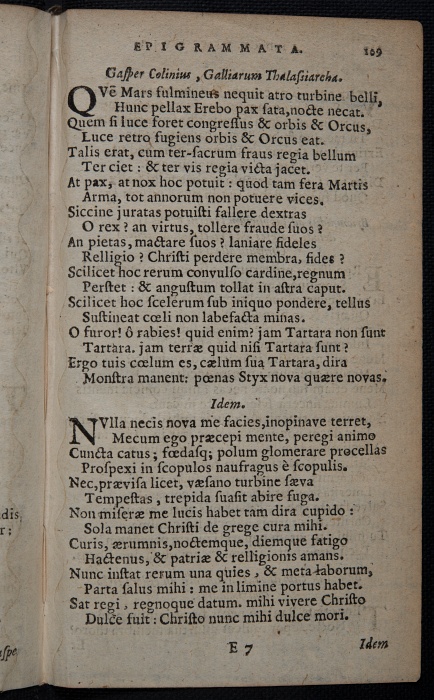 EPIGRAMMATA. 109
Gasper Colinius, Galliarum Thalassiarcha.
QVē Mars fulmineus nequit atro turbine belli,
Hunc pellax Erebo pax sata, nocte necat.
Quem si luce foret congressus & orbis & Orcus,
Luce retro fugiens orbis & Orcus eat.
Talis erat, cùm ter-sacrum fraus regia bellum
Ter ciet: & ter vis regia victa jacet.
At pax, at nox hoc potuit: quod tam fera Martis
Arma, tot annorum non potuere vices.
Siccine juratas potuisti fallere dextras
O rex? an virtus, tollere fraude suos?
An pietas, mactare suos? laniare fideles
Relligio? Christi perdere membra, fides?
Scilicet hoc rerum convulso cardine, regnum
Perstet: & angustum tollat in astra caput.
Scilicet hoc scelerum sub iniquo pondere, tellus
Sustineat cœli non labefacta minas.
O furor! ô rabies! quid enim? jam Tartara non sunt
Tartara. jam terræ quid nisi Tartara sunt?
Ergo tuis cœlum es, cælum sua Tartara, dira
Monstra manent: pœnas Styx nova quære novas.
Idem.
NVlla necis nova me facies, inopinave terret,
Mecum ego præcepi mente, peregi animo
Cuncta catus; fœdasq; polum glomerare procellas
Prospexi in scopulos naufragus è scopulis.
Nec, prævisa licet, væsano turbine sæva
Tempestas, trepida suasit abire fuga.
Non miseræ me lucis habet tam dira cupido:
Sola manet Christi de grege cura mihi.
Curis, ærumnis, noctemque, diemque fatigo
Hactenus, & patriæ & relligionis amans.
Nunc instat rerum una quies, & meta laborum,
Parta salus mihi: me in limine portus habet.
Sat regi, regnoque datum. mihi vivere Christo
Dulce fuit: Christo nunc mihi dulce mori.
E 7 Idem
dis
r: